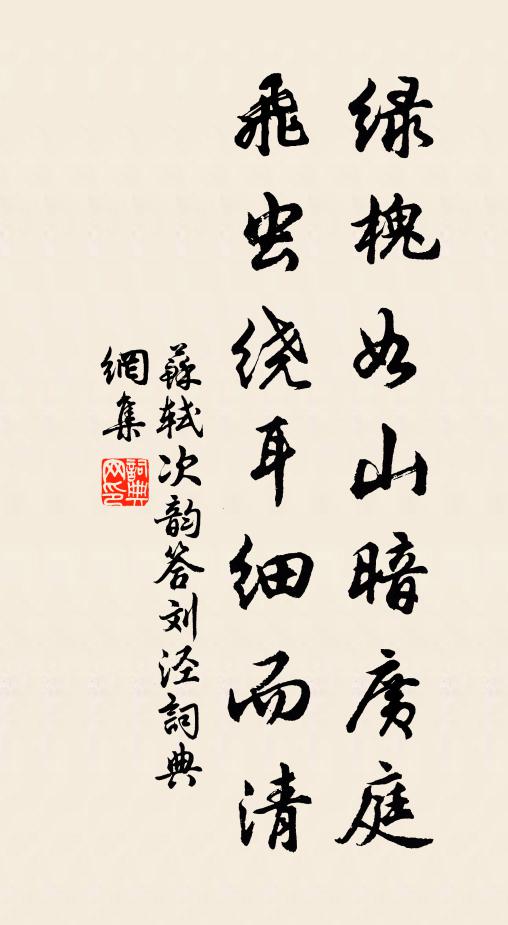 绿槐如山暗广庭
飞虫绕耳细而清
蘇轼次韵答刘泾詞典
網集
詞典网印